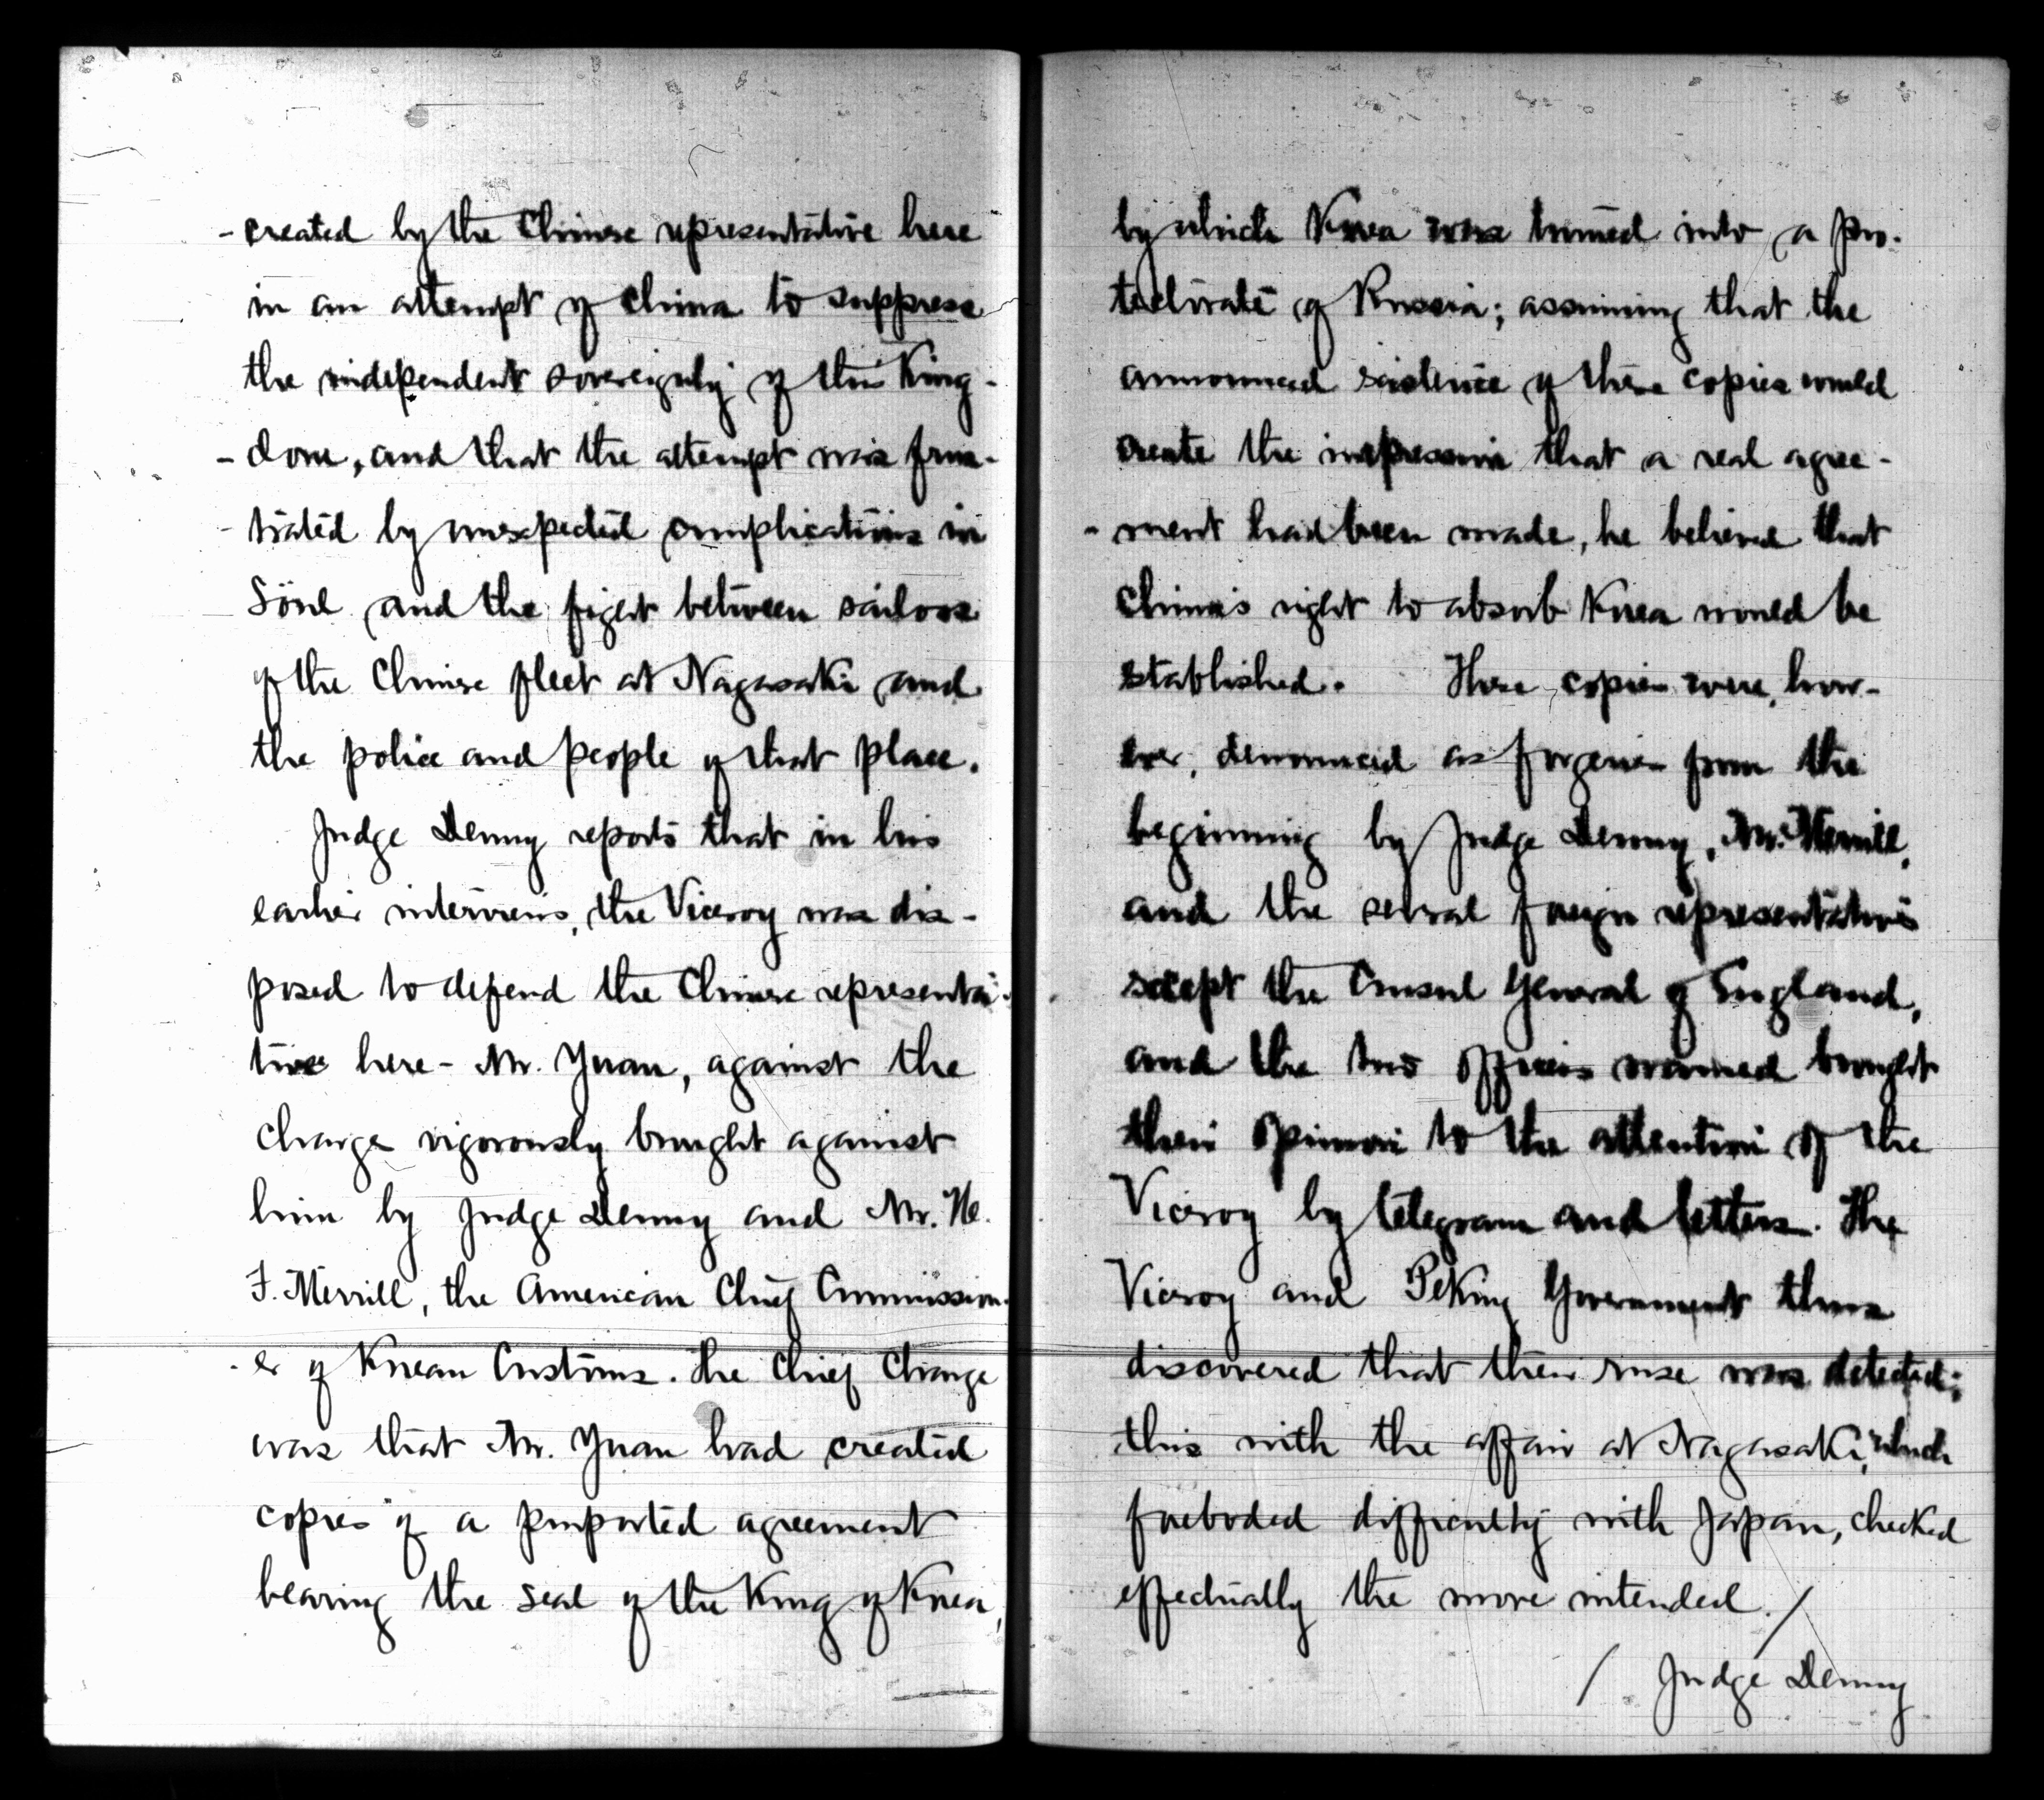 - created by the Chinese representative here
in an attempt of China to suppress
the independent sovereignty of this King-
- dom, and that the attempt was frus-
- trated by unexpected complications in
Söul and the fight between sailors
of the Chinese fleet at Nagasaki and
the police and people of that place.
Judge Denny reports that in his
earlier interviews, the Viceroy was dis-
posed to defend the Chinese representa-
tive here - Mr. Yuan, against the
charge vigorously brought against
him by Judge Denny and Mr. H.
F. Merrill, the American Chief Commission-
- er of Korean Customs. The chief charge
was that Mr. Yuan had created
copies of a purported agreement
bearing the seal of the King of Korea,
by which Korea was turned into a pro-
tectorate of Russia; assuming that the
announced existence of these copies would
create the impression that a real agree-
- ment had been made, he believed that
China's right to absorb Korea would be
established. These copies were, how-
ever, denounced as forgeries from the
beginning by Judge Denny, Mr. Merrill,
and the several foreign representatives
except the Consul General of England,
and the two officers named brought
their opinion to the attention of the
Viceroy by telegram and letters. The
Viceroy and Peking Government thus
discovered that their ruse was detected;
this with the affair at Nagasaki, which
foreboded difficulty with Japan, checked
effectually the move intended. /
/ Judge Denny